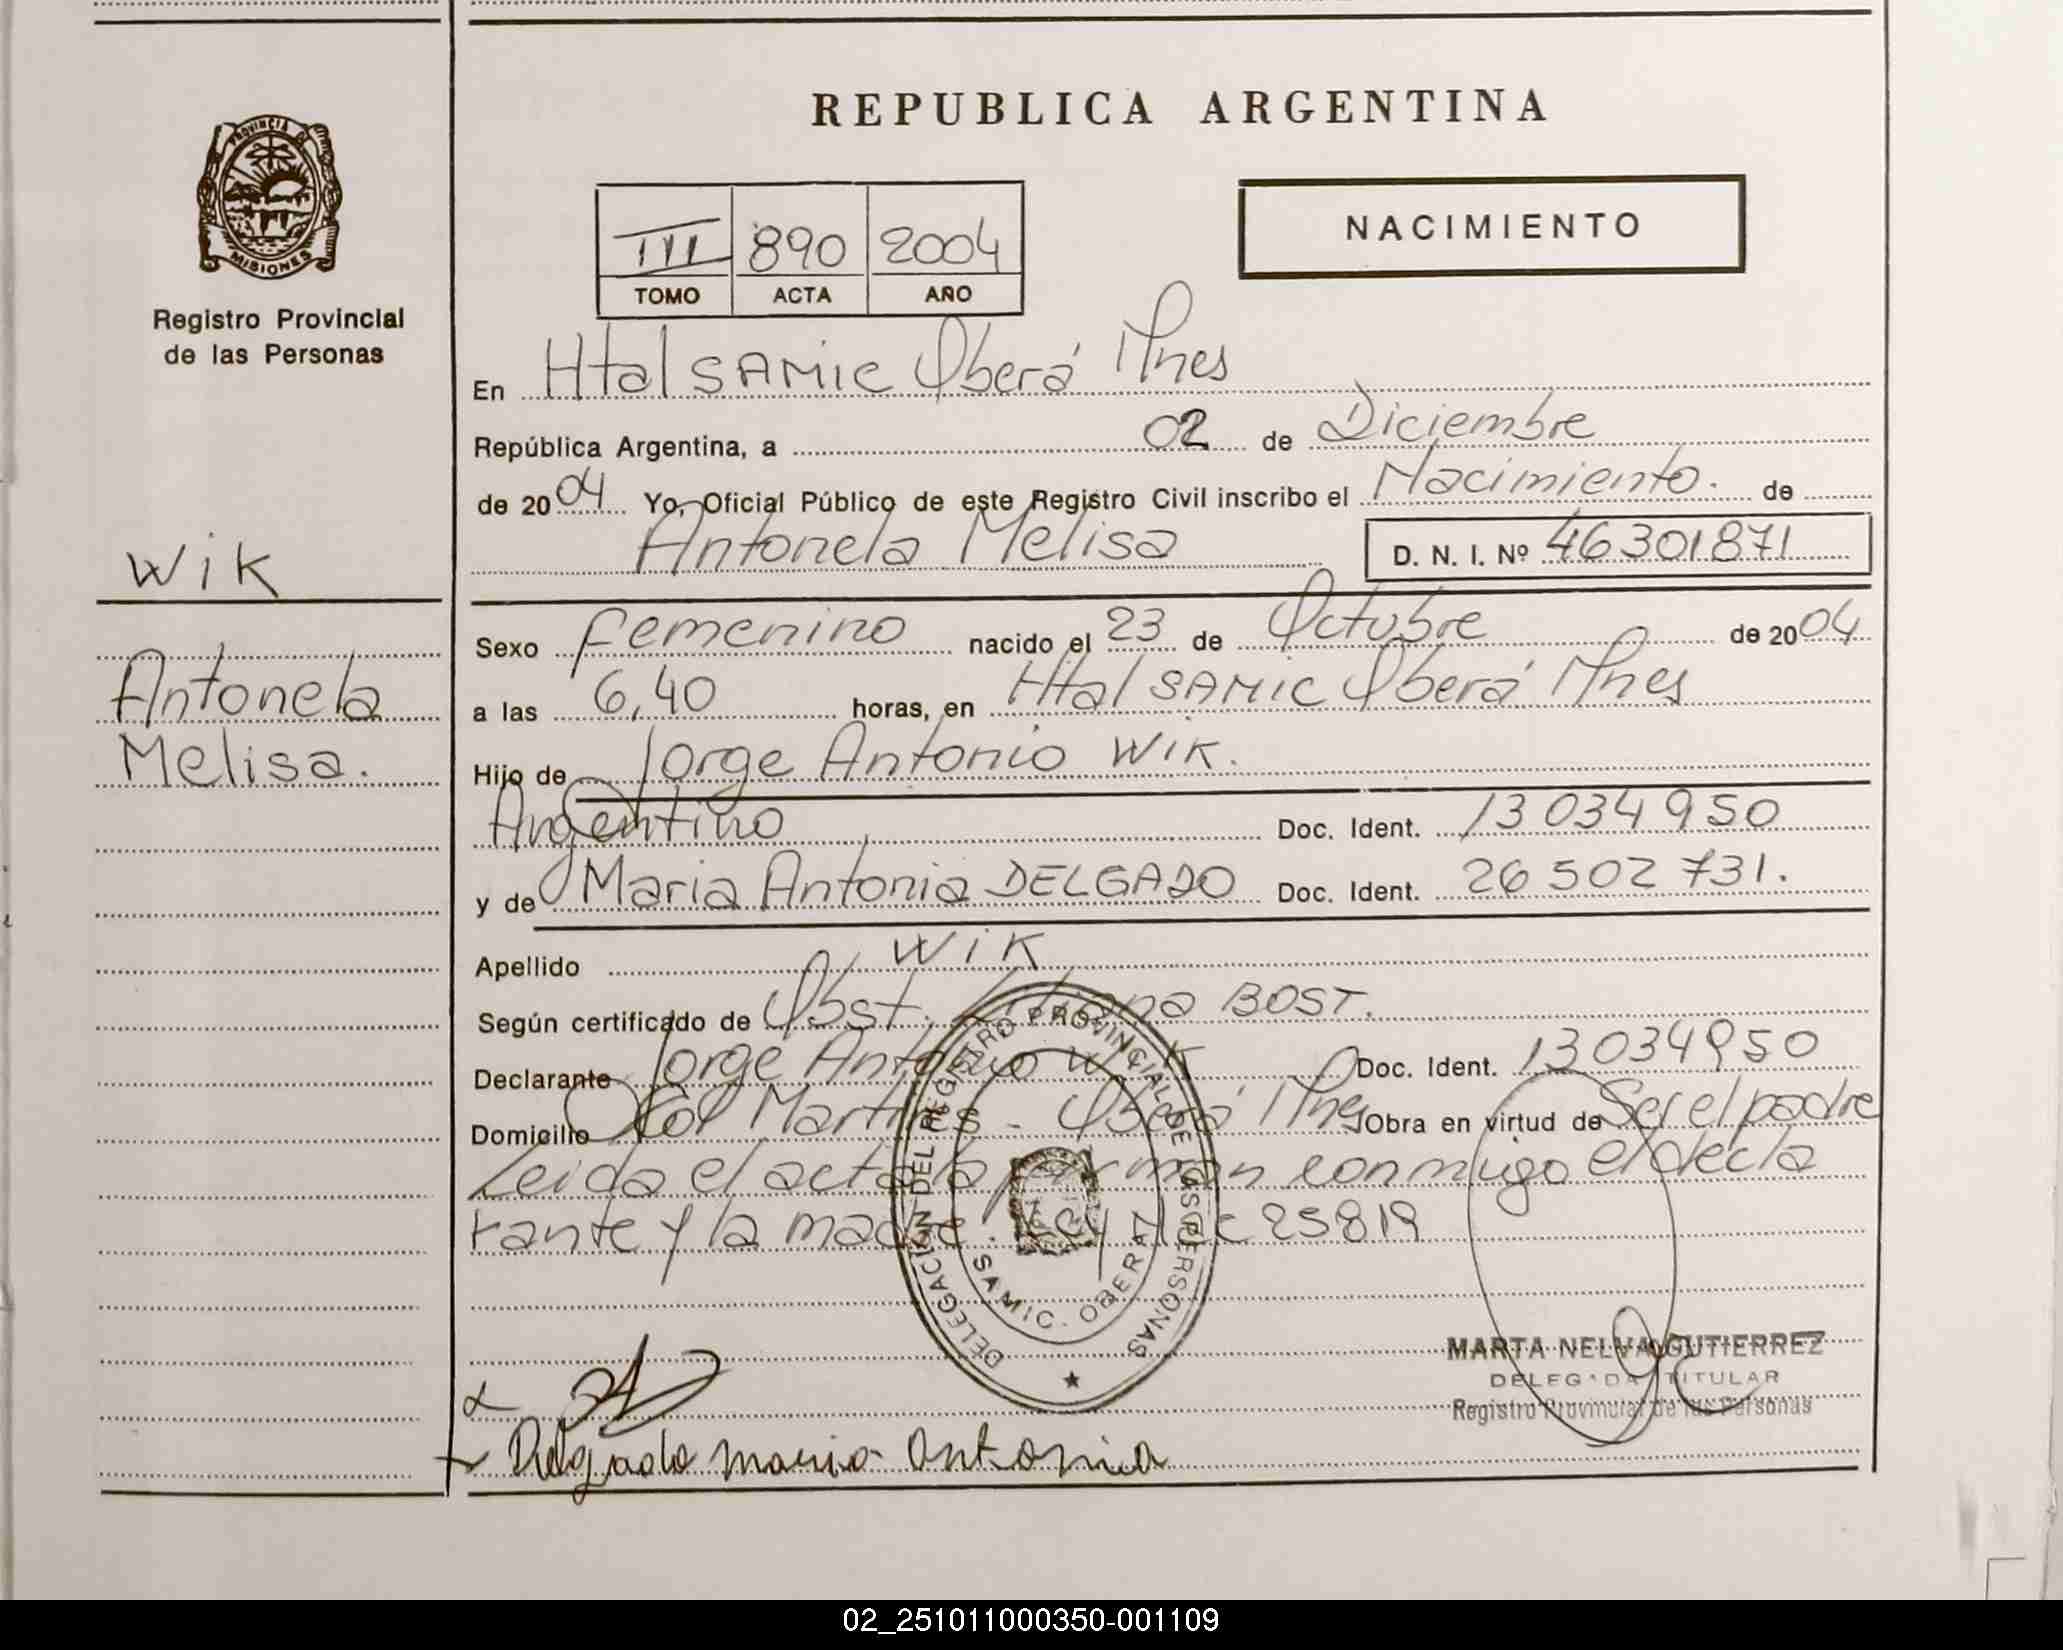 REPUBLICA ARGENTINA
PROVINCIA DE
MISIONES
Registro Provincial
de las Personas
III 890 2004
TOMO ACTA AÑO
NACIMIENTO
En Htal SAMIC Oberá Mnes
República Argentina, a 02 de Diciembre
de 2004 Yo, Oficial Público de este Registro Civil inscribo el Nacimiento. de
Antonela Melisa D. N. I. Nº 46301871
Wik
Antonela
Melisa.
Sexo Femenino nacido el 23 de Octubre de 2004
a las 6,40 horas, en Htal SAMIC Oberá Mnes
Hijo de Jorge Antonio Wik.
Argentino Doc. Ident. 13034950
y de Maria Antonia DELGADO Doc. Ident. 26502731.
Apellido Wik
Según certificado de Obst. BOST.
Declarante Jorge Antonio Wik Doc. Ident. 13034950
Domicilio Martires - Oberá Mnes Obra en virtud de Ser el padre
Leida el acta la firman conmigo el decla
rante y la madre. Ley 25819
DELEGACIÓN DEL REGISTRO PROVINCIAL DE LAS PERSONAS
SAMIC. OBERA
MARTA NELVA GUTIERREZ
DELEGADA TITULAR
Registro Provincial de las Personas
Delgado maria antonia
02_251011000350-001109